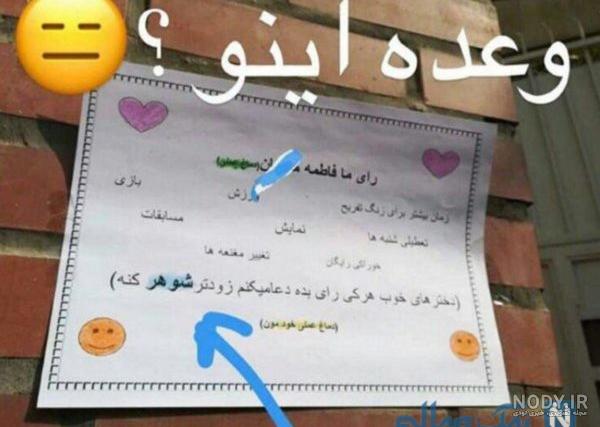 وعده اینو ؟
رای ما فاطمه
زمان بیشتر برای زنگ تفریح ورزش بازی
تعطیلی شنبه ها نمایش مسابقات
خوراکی رایگان تغییر مغنعه ها
(دخترهای خوب هرکی رای بده دعامیکنم زودتر شوهر کنه)
(دماغ عملی خود مون)
NODY.IR